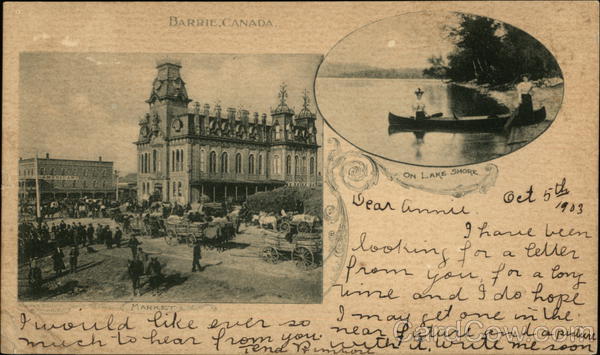 BARRIE, CANADA.
ON LAKE SHORE
MARKET
Oct 5th
1903
Dear Annie
I have been
looking for a letter
from you for a long
time and I do hope
I may get one in the
near
with it write me soon
I would like ever so
much to hear from you
CardCow.com